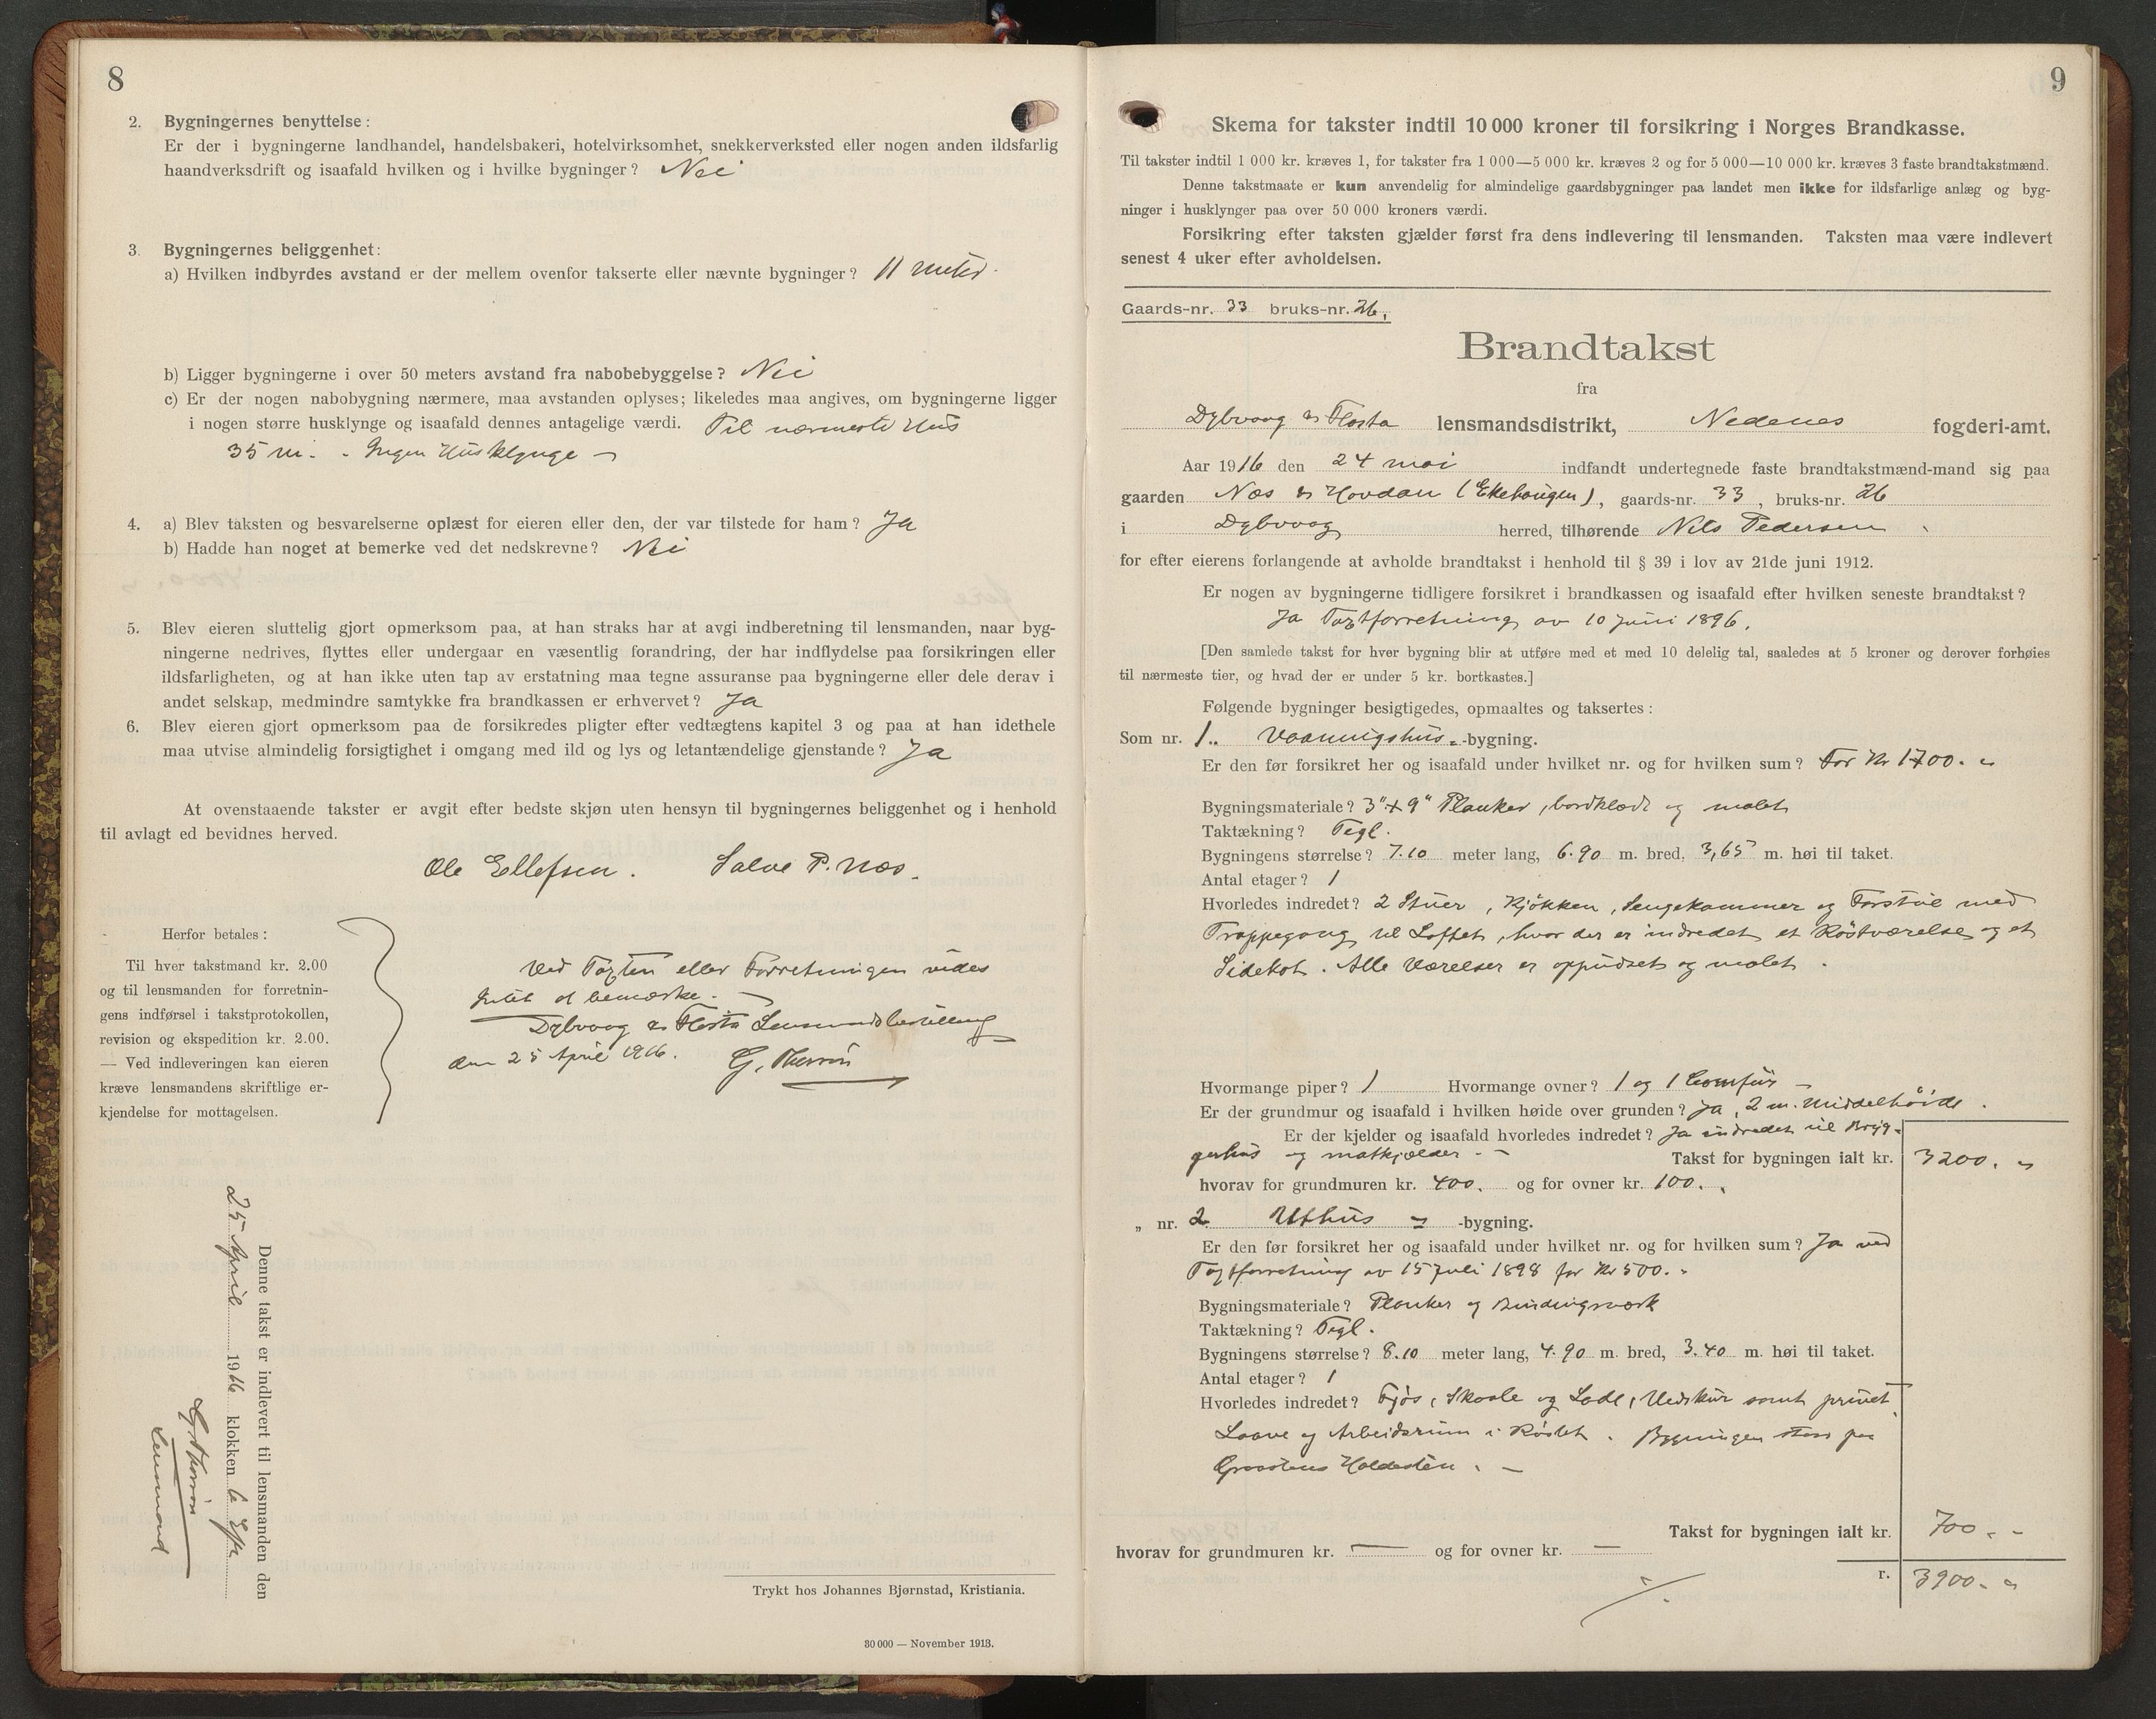 8
2. Bygningernes benyttelse:
Er der i bygningerne landhandel, handelsbakeri, hotelvirksomhet, snekkerverksted eller nogen anden ildsfarlig
haandverksdrift og isaafald hvilken og i hvilke bygninger? Nei
3. Bygningernes beliggenhet:
a) Hvilken indbyrdes avstand er der mellem ovenfor takserte eller nævnte bygninger? 11 meter.
b) Ligger bygningerne i over 50 meters avstand fra nabobebyggelse? Nei
c) Er der nogen nabobygning nærmere, maa avstanden oplyses; likeledes maa angives, om bygningerne ligger
i nogen større husklynge og isaafald dennes antagelige værdi. Til nærmeste Hus
35 m. - Ingen Husklynge –
4. a) Blev taksten og besvarelserne oplæst for eieren eller den, der var tilstede for ham? Ja
b) Hadde han noget at bemerke ved det nedskrevne? Nei
5. Blev eieren sluttelig gjort opmerksom paa, at han straks har at avgi indberetning til lensmanden, naar byg-
ningerne nedrives, flyttes eller undergaar en væsentlig forandring, der har indflydelse paa forsikringen eller
ildsfarligheten, og at han ikke uten tap av erstatning maa tegne assuranse paa bygningerne eller dele derav i
andet selskap, medmindre samtykke fra brandkassen er erhvervet? Ja
6. Blev eieren gjort opmerksom paa de forsikredes pligter efter vedtægtens kapitel 3 og paa at han idethele
maa utvise almindelig forsigtighet i omgang med ild og lys og letantændelige gjenstande? Ja
At ovenstaaende takster er avgit efter bedste skjøn uten hensyn til bygningernes beliggenhet og i henhold
til avlagt ed bevidnes herved.
Ole Ellefsen. Salve P. Næs.
Herfor betales:
Til hver takstmand kr. 2.00
og til lensmanden for forretnin-
gens indførsel i takstprotokollen,
revision og ekspedition kr. 2.00.
— Ved indleveringen kan eieren
kræve lensmandens skriftlige er-
kjendelse for mottagelsen.
Ved Taxten eller Forretningen vides
Intet at bemærke. –
Dybvaag & Flosta Lensmandsbestilling
den 25 April 1916. G. Thorsen
Denne takst er indlevert til lensmanden den
25 April 1916 klokken 6 Eftr
G. Thorsen
Lensmand
Trykt hos Johannes Bjørnstad, Kristiania.
30 000 — November 1913.
9
Skema for takster indtil 10 000 kroner til forsikring i Norges Brandkasse.
Til takster indtil 1 000 kr. kræves 1, for takster fra 1 000—5 000 kr. kræves 2 og for 5 000—10 000 kr. kræves 3 faste brandtakstmænd.
Denne takstmaate er kun anvendelig for almindelige gaardsbygninger paa landet men ikke for ildsfarlige anlæg og byg-
ninger i husklynger paa over 50 000 kroners værdi.
Forsikring efter taksten gjælder først fra dens indlevering til lensmanden. Taksten maa være indlevert
senest 4 uker efter avholdelsen.
Gaards-nr. 33 bruks-nr. 26.
Brandtakst
fra
Dybvaag & Flosta lensmandsdistrikt, Nedenes fogderi-amt.
Aar 1916 den 24 mai indfandt undertegnede faste brandtakstmænd-mand sig paa
gaarden Næs & Hovdan (Ekehaugen), gaards-nr. 33, bruks-nr. 26
i Dybvaag herred, tilhørende Nils Pedersen
for efter eierens forlangende at avholde brandtakst i henhold til § 39 i lov av 21de juni 1912.
Er nogen av bygningerne tidligere forsikret i brandkassen og isaafald efter hvilken seneste brandtakst?
Ja Taxtforretning av 10 Juni 1896.
[Den samlede takst for hver bygning blir at utføre med et med 10 delelig tal, saaledes at 5 kroner og derover forhøies
til nærmeste tier, og hvad der er under 5 kr. bortkastes.]
Følgende bygninger besigtigedes, opmaaltes og taksertes:
Som nr. 1. Vaaningshus -bygning.
Er den før forsikret her og isaafald under hvilket nr. og for hvilken sum? For Kr 1700. "
Bygningsmateriale? 3" x 9" Planker, bordklædt og malet
Taktækning? Tegl.
Bygningens størrelse? 7.10 meter lang, 6.90 m. bred, 3,65 m. høi til taket.
Antal etager? 1
Hvorledes indredet? 2 Stuer, Kjøkken, Sengekammer og Forstue med
Trappegang til Loftet, hvor der er indredet et Røstværelse og et
Sidekot. Alle Værelser er oppudset og malet.
Hvormange piper? 1 Hvormange ovner? 1 og 1 Comfur –
Er der grundmur og isaafald i hvilken høide over grunden? Ja, 2 m. Middelhøide.
Er der kjelder og isaafald hvorledes indredet? Ja indredet til Bryg-
gerhus og matkjælder. – Takst for bygningen ialt kr. 3200. "
hvorav for grundmuren kr. 400. og for ovner kr. 100.
„ nr. 2 Uthus -bygning.
Er den før forsikret her og isaafald under hvilket nr. og for hvilken sum? Ja ved
Taxtforretning av 15 Juli 1898 for Kr 500. "
Bygningsmateriale? Planker og Bindingsværk
Taktækning? Tegl.
Bygningens størrelse? 8.10 meter lang, 4.90 m. bred, 3.40 m. høi til taket.
Antal etager? 1
Hvorledes indredet? Fjøs, Skaale og Lade, Vedskur samt privet
Laave og Arbeidsrum i Røstet. Bygningen staar paa
Graastens Holdesten. –
Takst for bygningen ialt kr. 700. -
hvorav for grundmuren kr. — og for ovner kr. —
r. 3900. "